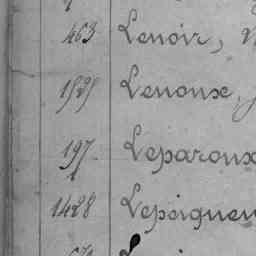 463 Lenoir,
1525 Lenoux,
197 Leparoux
1428 Lepeigneu